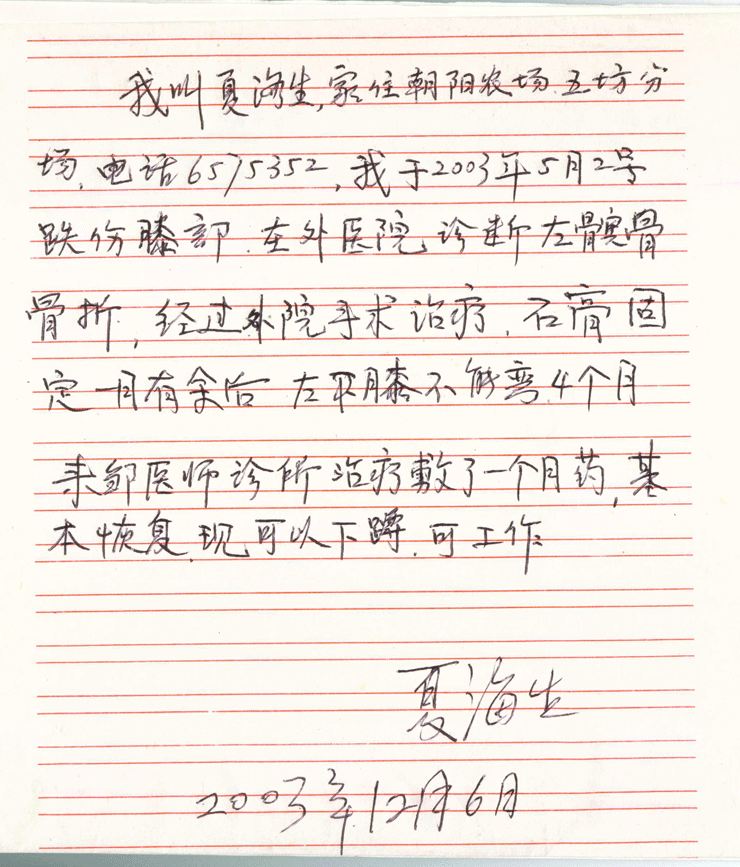 我叫夏海生,家住朝阳农场五坊分
场,电话6575352,我于2003年5月2号
跌伤膝部.在外医院诊断左髋骨
骨折,经过外院手术治疗,石膏固
定一月有余后 左下膝不能弯.4个月
来邹医师诊所治疗敷了一个月药,基
本恢复,现可以下蹲.可工作
夏海生
2003年12月6月